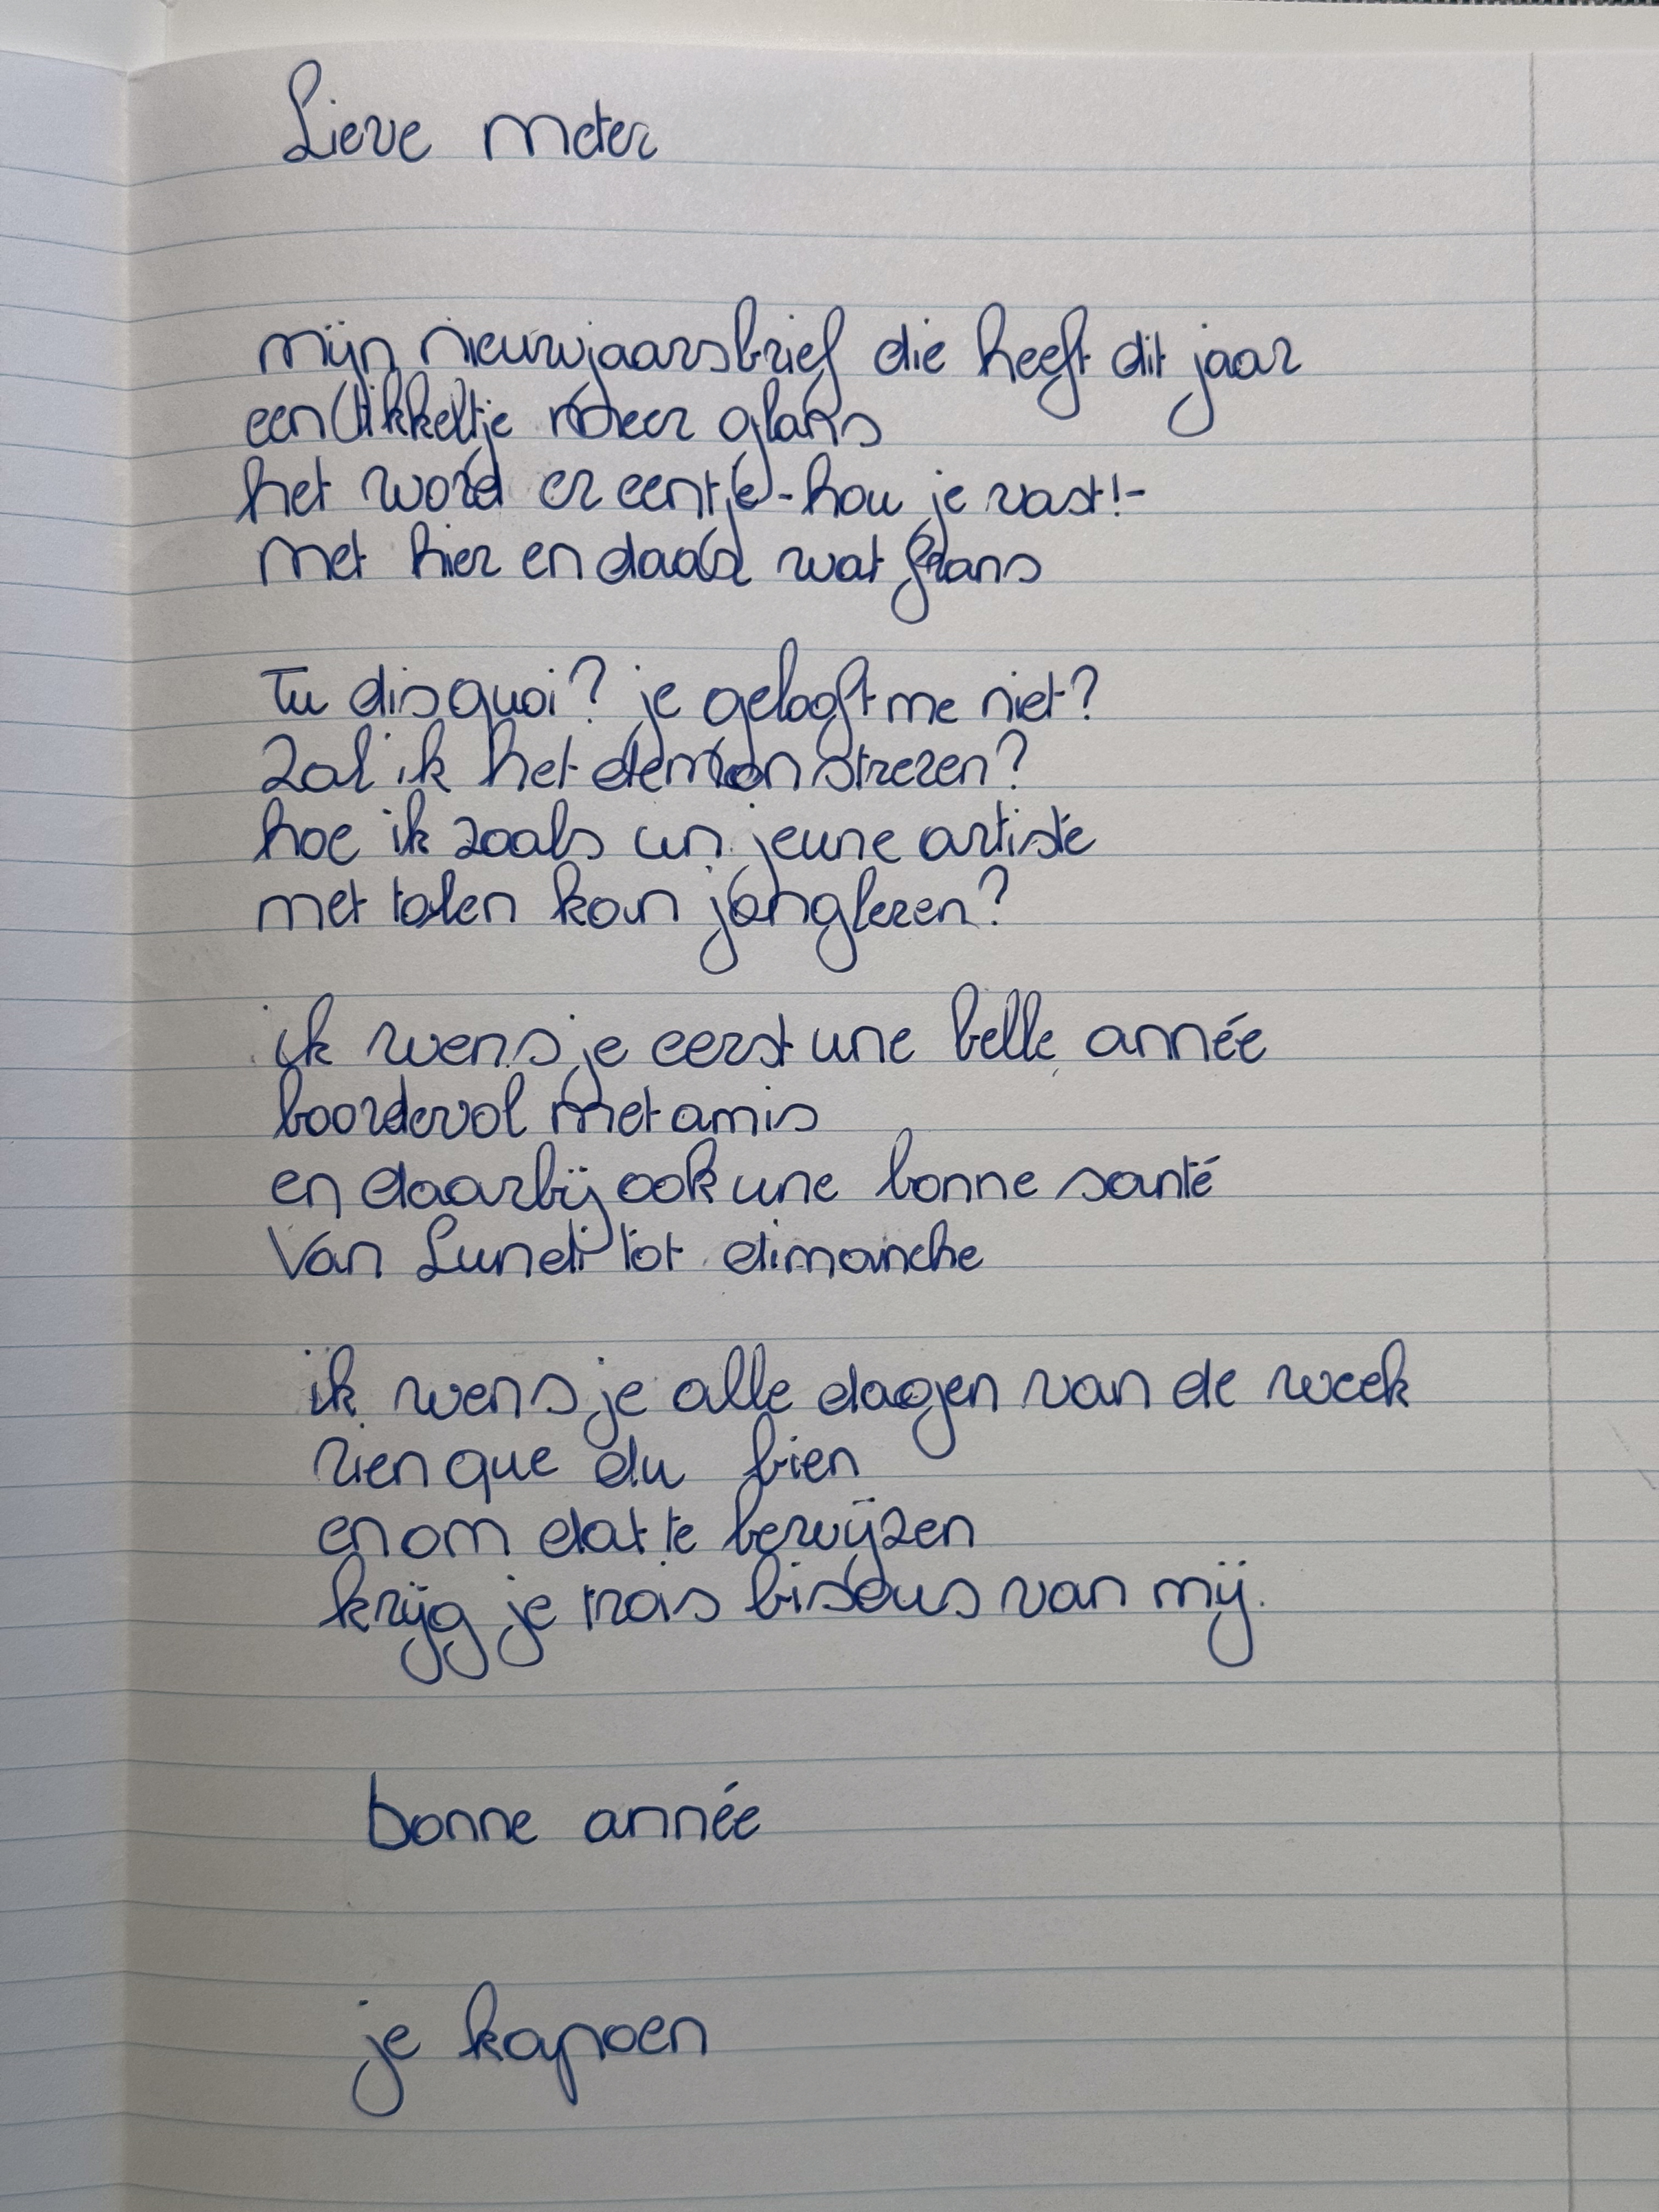 Lieve meter
mijn nieuwjaarsbrief die heeft dit jaar
een tikkeltje meer glans
het word er eentje - hou je vast! -
met hier en daar wat frans
Tu dis quoi? je gelooft me niet?
Zal ik het demonstreren?
hoe ik zoals un jeune artiste
met talen kan jongleren?
ik wens je eerst une belle année
boordevol met amis
en daarbij ook une bonne santé
Van Lundi tot dimanche
ik wens je alle dagen van de week
rien que du bien
en om dat te bewijzen
krijg je trois bisous van mij.
bonne année
je kapoen